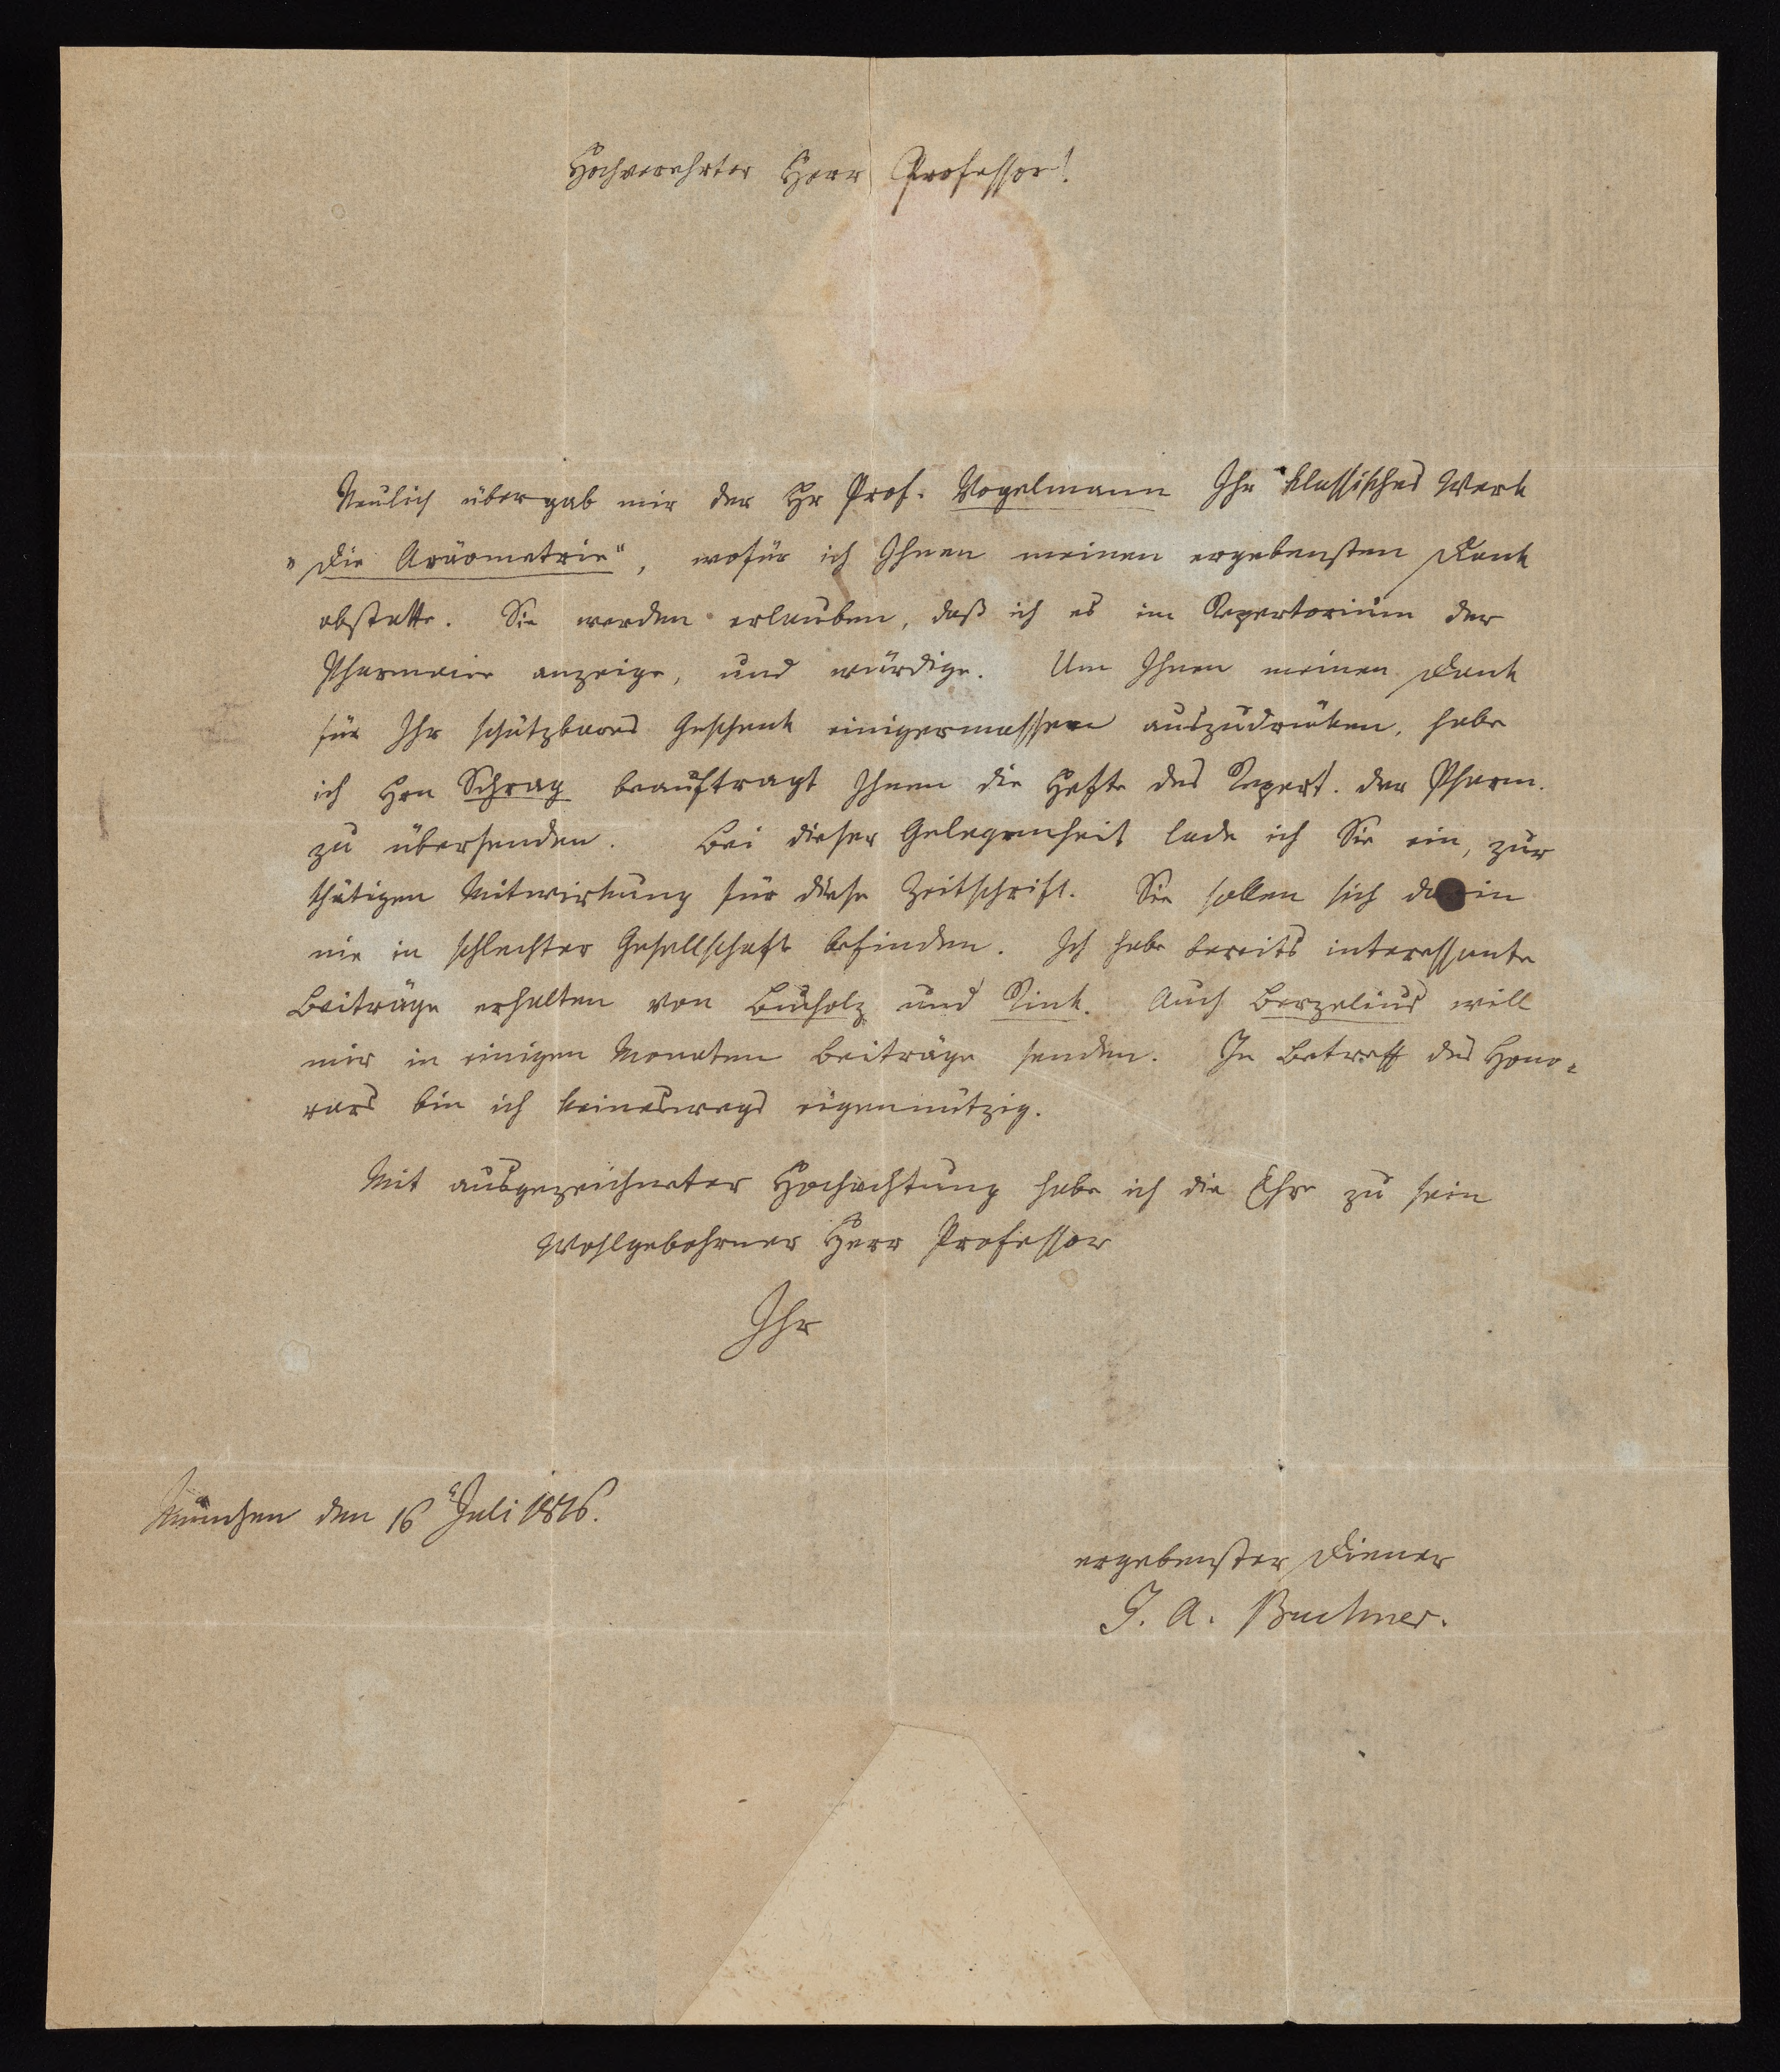 Hochverehrter Herr Professor!
Neulich übergab mir der Hr Prof. Vogelmann Ihr klassisches Werk
„Die Aräometrie“, wofür ich Ihnen meinen ergebensten Dank
abstatte. Sie werden erlauben, daß ich es im Repertorium der
Pharmacie anzeige, und würdige. Um Ihnen meinen Dank
für Ihr schätzbares Geschenk einigermassen auszudrüken, habe
ich Hrn Schrag beauftragt Ihnen die Hefte des Repert. der Pharm.
zu übersenden. Bei dieser Gelegenheit lade ich Sie ein, zur
thätigen Mitwirkung für diese Zeitschrift. Sie sollen sich darin
nie in schlechter Gesellschaft befinden. Ich habe bereits interessante
Beiträge erhalten von Bucholz und Rink. Auch Berzelius will
mir in einigen Monaten Beiträge senden. In Betreff des Hono-
rars bin ich keineswegs eigennützig.
Mit ausgezeichneter Hochachtung habe ich die Ehre zu sein
Wohlgebohrner Herr Professor
Ihr
München den 16 Juli 1816.
ergebenster Diener
J. A. Buchner.